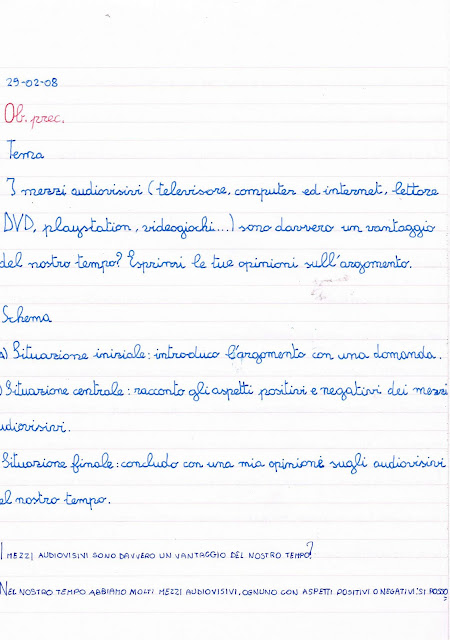 29-02-08
Ob. prec.
Tema
I mezzi audiovisivi (televisore, computer ed internet, lettore
DVD, playstation, videogiochi...) sono davvero un vantaggio
del nostro tempo? Esprimi le tue opinioni sull'argomento.
Schema
A) Situazione iniziale: introduco l'argomento con una domanda.
) Situazione centrale: racconto gli aspetti positivi e negativi dei mezzi
udiovisivi.
Situazione finale: concludo con una mia opinione sugli audiovisivi
el nostro tempo.
I MEZZI AUDIOVISIVI SONO DAVVERO UN VANTAGGIO DEL NOSTRO TEMPO?
NEL NOSTRO TEMPO ABBIAMO MOLTI MEZZI AUDIOVISIVI, OGNUNO CON ASPETTI POSITIVI O NEGATIVI: SI POSSO